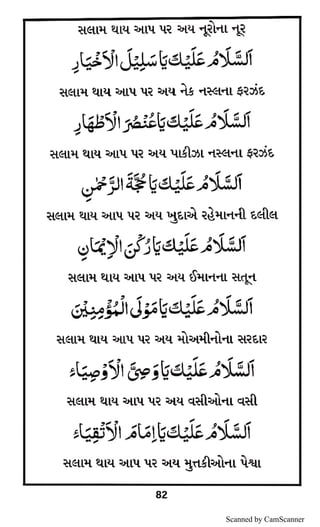 સલામ થાય આપ પર અય નૂરોના નૂર
اَلسَّلَامُ عَلَيْكَ يَا سَلِيْلَ الْاَخْيَارِ
સલામ થાય આપ પર અય નેક નસ્લના ફરઝંદ
اَلسَّلَامُ عَلَيْكَ يَا عُنْصُرَ الْاَطْهَارِ
સલામ થાય આપ પર અય પાકીઝા નસ્લના ફરઝંદ
اَلسَّلَامُ عَلَيْكَ يَا حُجَّةَ الرَّحْمٰنِ
સલામ થાય આપ પર અય ખુદાએ રહેમાનની દલીલ
اَلسَّلَامُ عَلَيْكَ يَا رُكْنَ الْاِيْمَانِ
સલામ થાય આપ પર અય ઈમાનના સતૂન
اَلسَّلَامُ عَلَيْكَ يَا مَوْلَى الْمُؤْمِنِيْنَ
સલામ થાય આપ પર અય મોઅમીનોના સરદાર
اَلسَّلَامُ عَلَيْكَ يَا وَصِيَّ الْاَوْصِيَاءِ
સલામ થાય આપ પર અય વસીઓના વસી
اَلسَّلَامُ عَلَيْكَ يَا اِمَامَ الْاَتْقِيَاءِ
સલામ થાય આપ પર અય મુત્તકીઓના પેશ્વા
82
Scanned by CamScanner